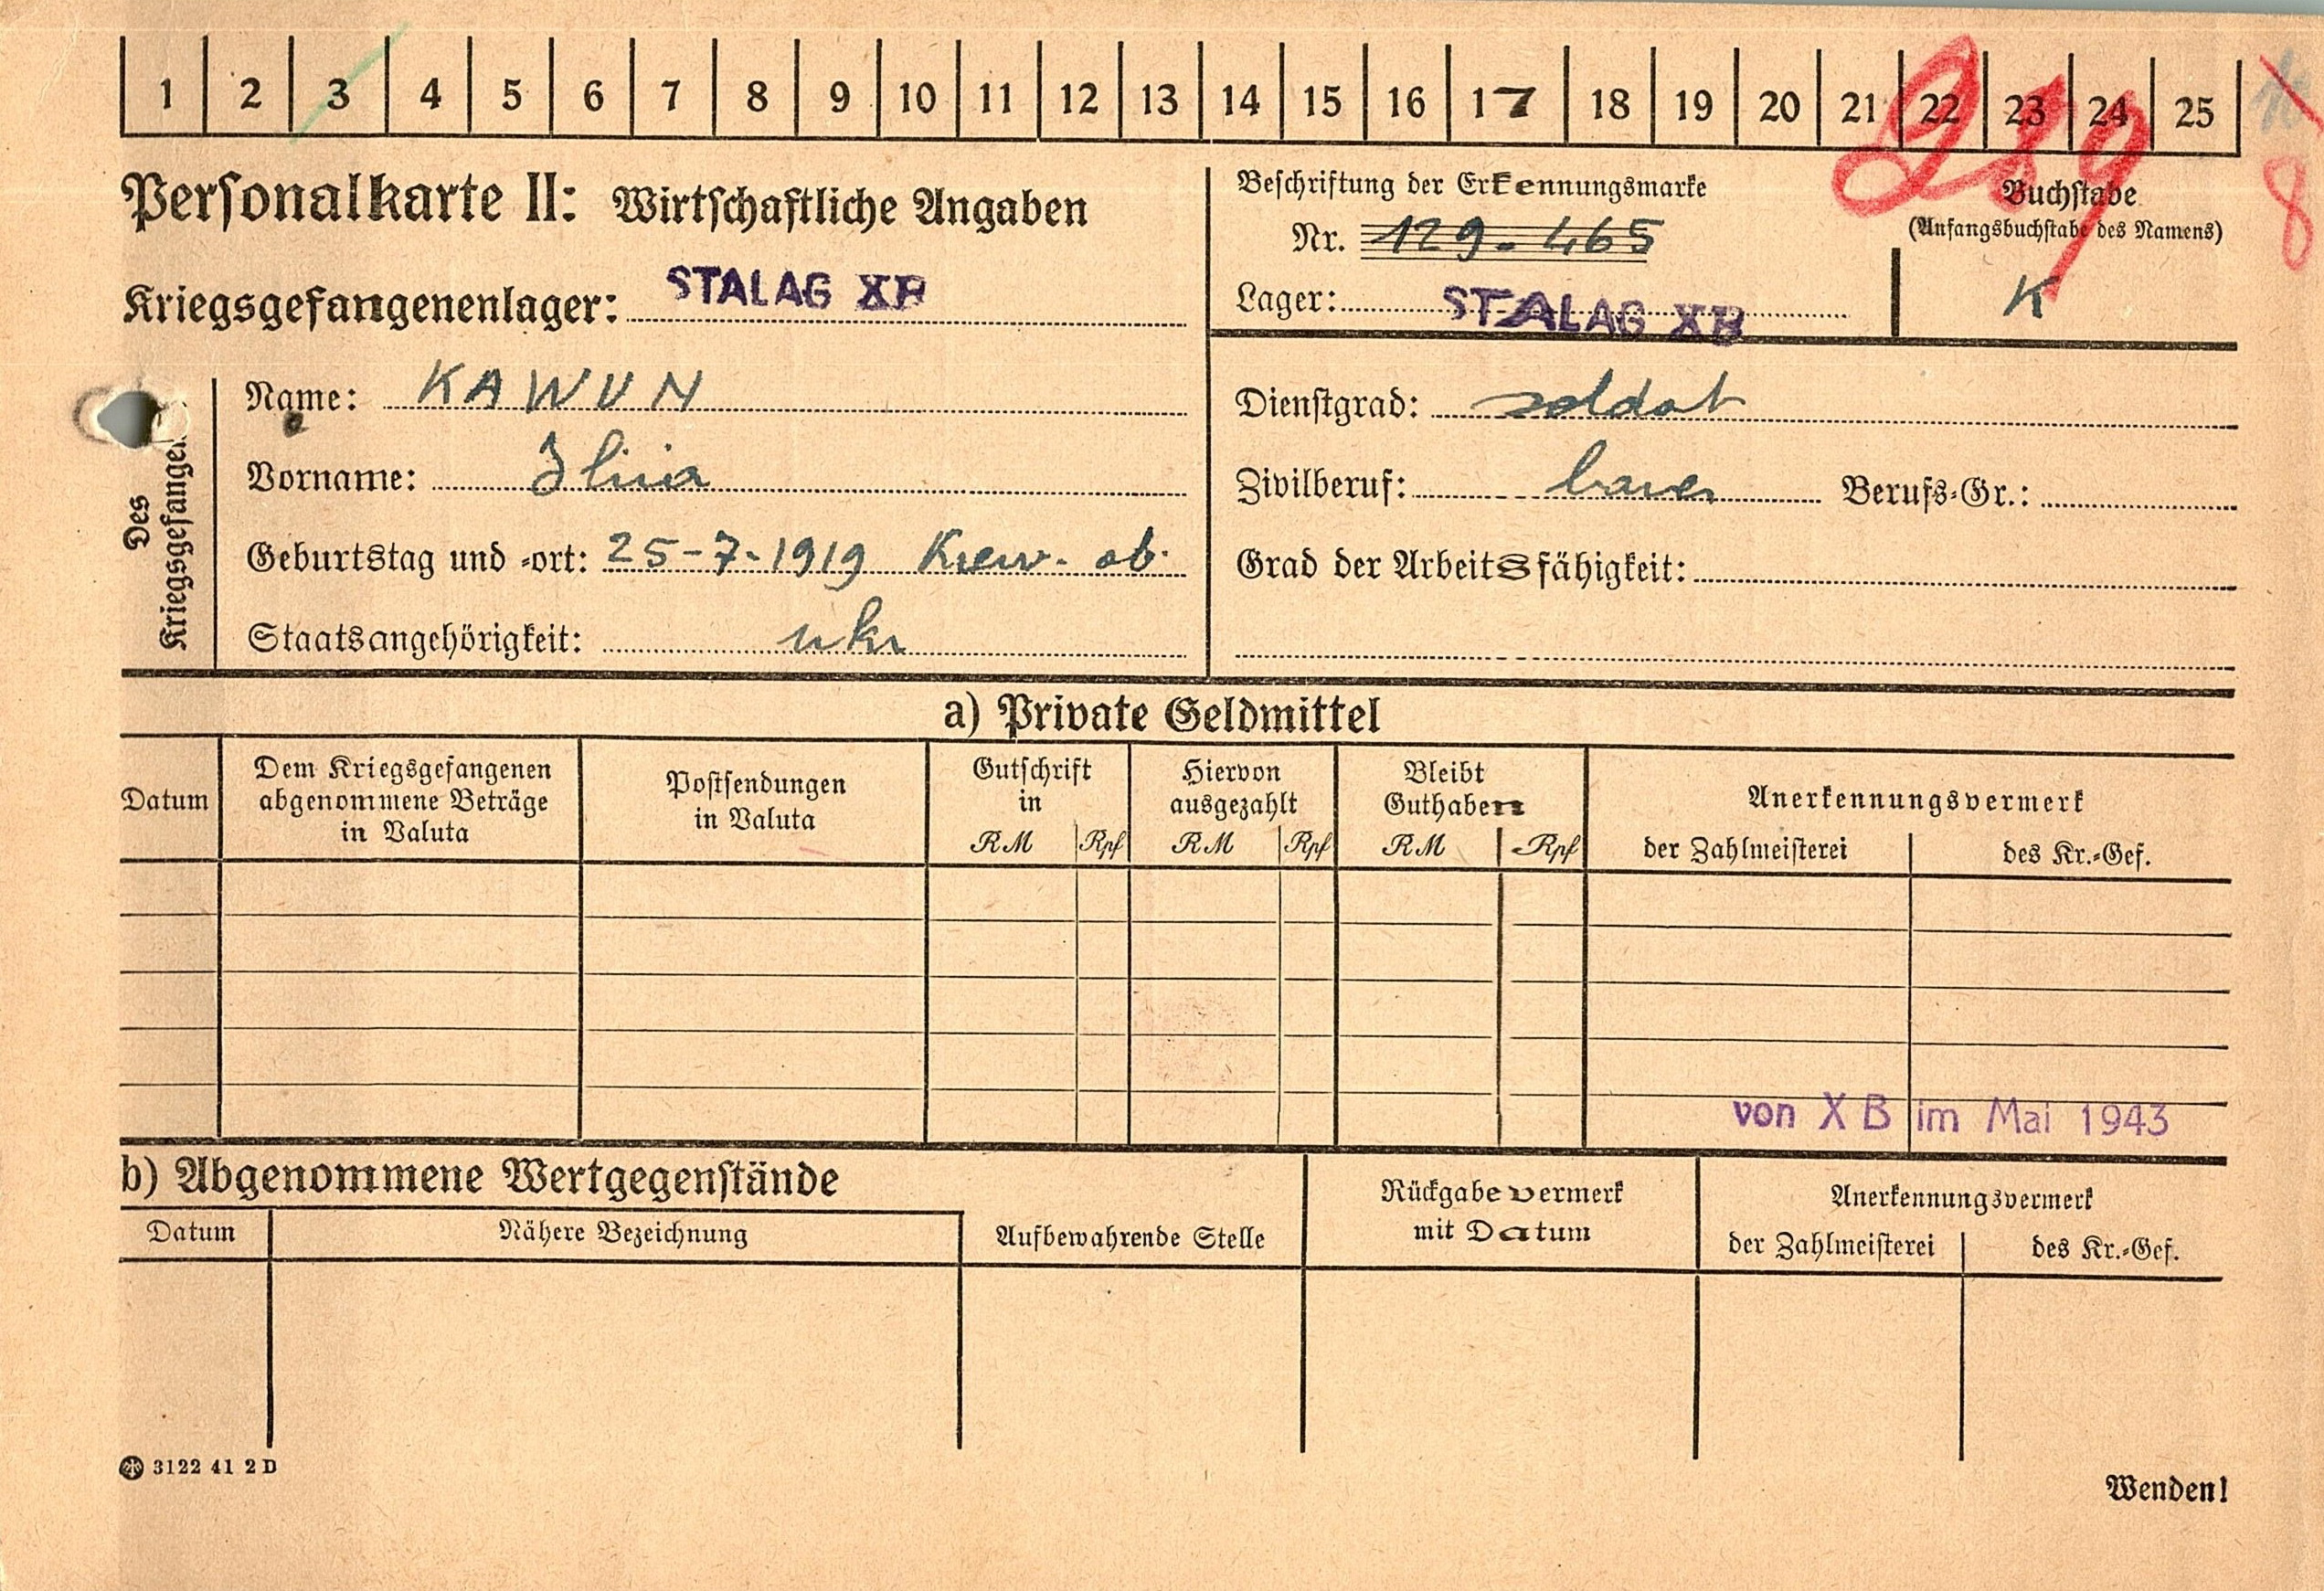 1 2 3 4 5 6 7 8 9 10 11 12 13 14 15 16 17 18 19 20 21 22 23 24 25
Personalkarte II: Wirtschaftliche Angaben
Kriegsgefangenenlager: STALAG XB
Beschriftung der Erkennungsmarke
Nr. 129-465
Lager: STALAG XB
Buchstabe
(Anfangsbuchstabe des Namens)
K
8
Des
Kriegsgefangenen
Name: KAWUN
Vorname: Ilija
Geburtstag und -ort: 25-7-1919 Kiew-ob.
Staatsangehörigkeit: ukr
Dienstgrad: soldat
Zivilberuf: bauer Berufs-Gr.:
Grad der Arbeitsfähigkeit:
a) Private Geldmittel
Datum
Dem Kriegsgefangenen
abgenommene Beträge
in Valuta
Postsendungen
in Valuta
Gutschrift
in
RM Rpf
Hiervon
ausgezahlt
RM Rpf
Bleibt
Guthaben
RM Rpf
Anerkennungsvermerk
der Zahlmeisterei des Kr.-Gef.
von X B im Mai 1943
b) Abgenommene Wertgegenstände
Datum
Nähere Bezeichnung
Aufbewahrende Stelle
Rückgabevermerk
mit Datum
Anerkennungsvermerk
der Zahlmeisterei des Kr.-Gef.
3122 41 2 D
Wenden!